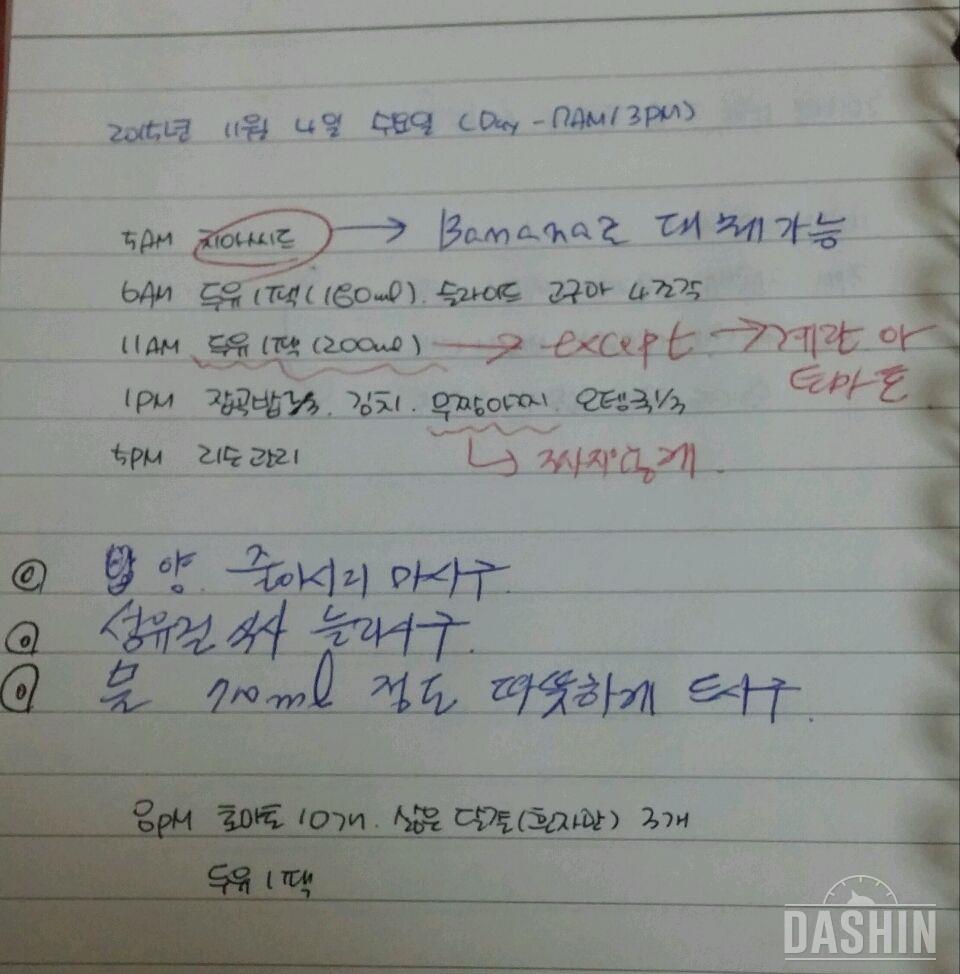 2015년 11월 4일 수요일 (Day - 7AM / 3PM)
5AM 치아씨드 → Banana로 대체가능
6AM 두유 1팩 (180ml). 슬라이드 고구마 4조각
11AM 두유 1팩 (200ml) → except → 계란 and
토마토
1PM 잡곡밥 김치. 무짱아찌. 오뎅국 1/3
5PM 리도 관리
밥 양. 줄이시리 마시구.
섬유질 식사 늘리시구.
물 700ml 정도 따뜻하게 드시구.
8PM 토마토 10개. 삶은 달걀 (흰자만) 3개
두유 1팩
DASHIN